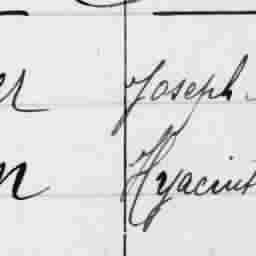 er Joseph
n Hyacint